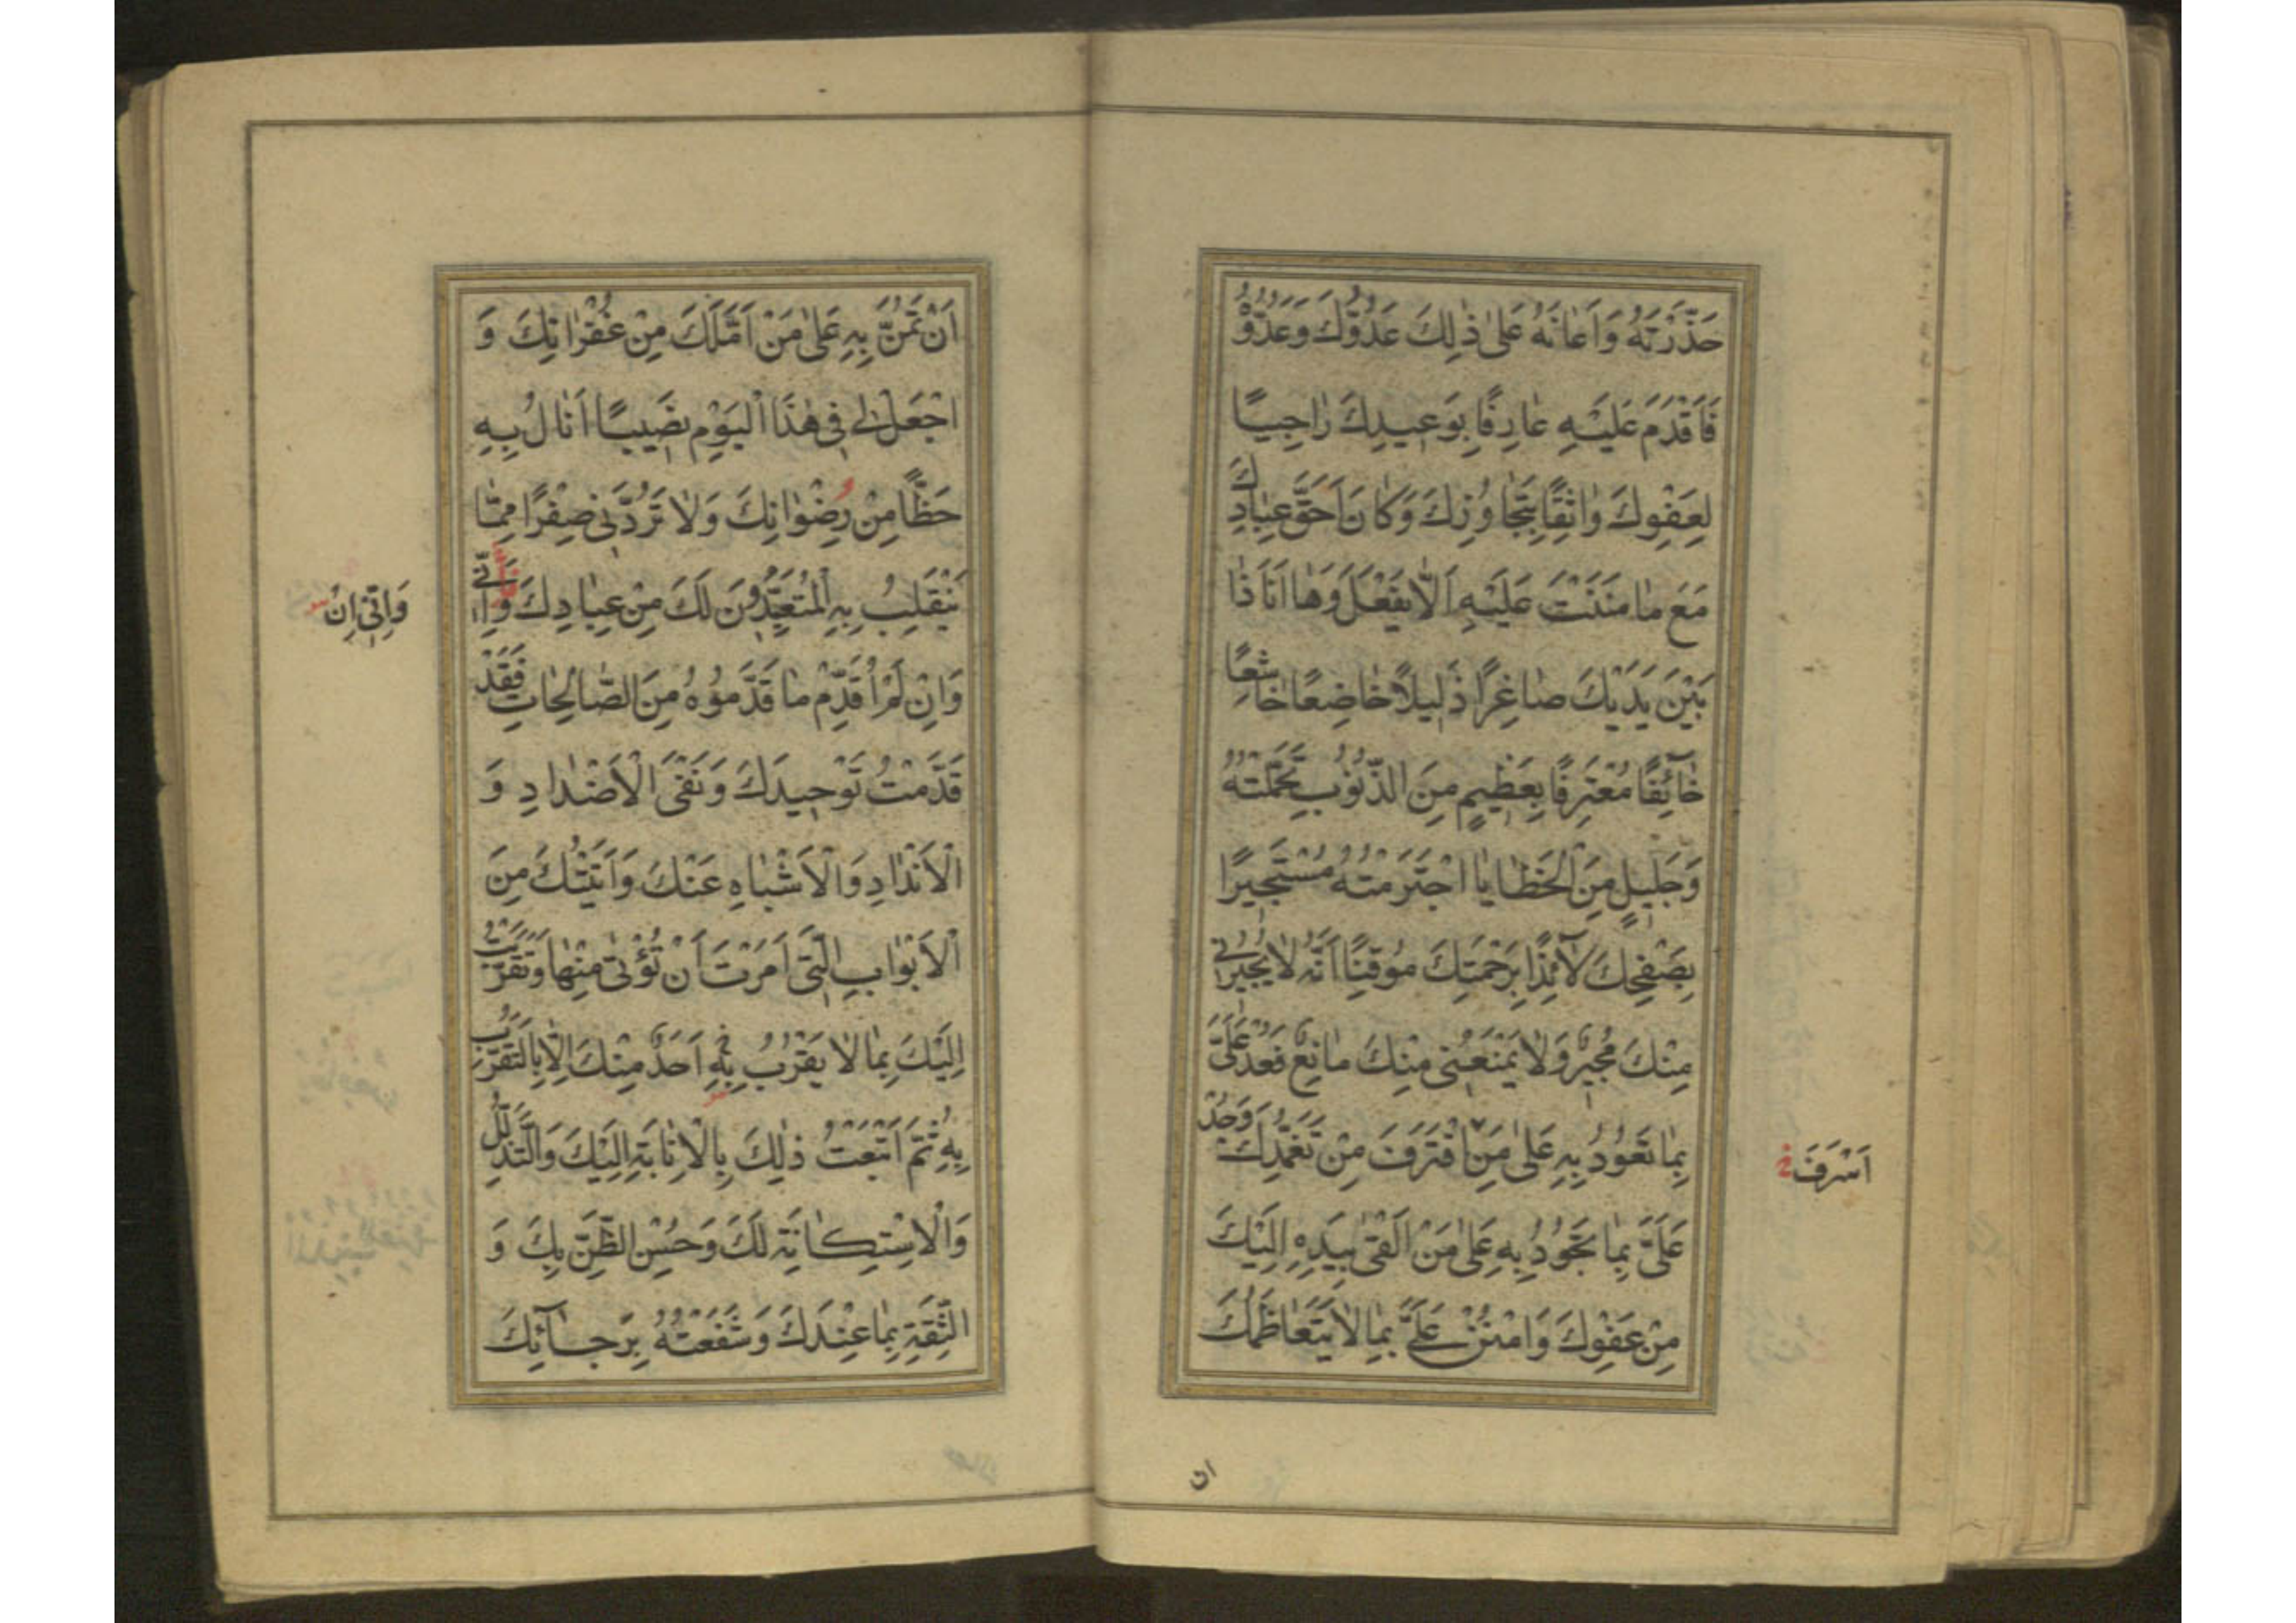 حَذَّرْتَهُ وَاَعَانَهُ عَلىٰ ذٰلِكَ عَدُوُّكَ وَعَدُوُّهُ
فَاَقْدَمَ عَلَيْهِ عَارِفًا بِوَعِيدِكَ رٰاجِيًا
لِعَفْوِكَ وٰاثِقًا بِتَجٰاوُزِكَ وَكٰانَ اَحَقَّ عِبٰادِكَ
مَعَ مٰا مَنَنْتَ عَلَيْهِ اَلّٰا يَفْعَلَ وَهٰا اَنَا ذٰا
بَيْنَ يَدَيْكَ صٰاغِرًا ذَلِيلًا خٰاضِعًا خٰاشِعًا
خٰآئِفًا مُعْتَرِفًا بِعَظِيمٍ مِنَ الذُّنُوبِ تَحَمَّلْتُهُ
وَجَلِيلٍ مِنَ الْخَطٰايٰا اجْتَرَمْتُهُ مُسْتَجِيرًا
بِصَفْحِكَ لٰآئِذًا بِرَحْمَتِكَ مُوقِنًا اَنَّهُ لٰا يُجِيرُنِي
مِنْكَ مُجِيرٌ وَلٰا يَمْنَعُنِي مِنْكَ مٰانِعٌ فَعُدْ عَلَيَّ
بِمٰا تَعُودُ بِهِ عَلىٰ مَنِ اقْتَرَفَ مِنْ تَغَمُّدِكَ وَجُدْ
اَسْرَفَ خ
عَلَيَّ بِمٰا تَجُودُ بِهِ عَلىٰ مَنْ اَلْقىٰ بِيَدِهِ اِلَيْكَ
مِنْ عَفْوِكَ وَامْنُنْ عَلَيَّ بِمٰا لٰا يَتَعٰاظَمُكَ
ان
اَنْ تَمُنَّ بِهِ عَلىٰ مَنْ اَمَّلَكَ مِنْ غُفْرٰانِكَ وَ
اجْعَلْ لِي فِي هٰذَا الْيَوْمِ نَصِيبًا اَنٰالُ بِهِ
حَظًّا مِنْ رِضْوٰانِكَ وَلٰا تَرُدَّنِي صِفْرًا مِمّٰا
يَنْقَلِبُ بِهِ الْمُتَعَبِّدُونَ لَكَ مِنْ عِبٰادِكَ وَاِنِّي
وَاِنِّي اِنْ
وَاِنْ لَمْ اُقَدِّمْ مٰا قَدَّمُوهُ مِنَ الصّٰالِحٰاتِ فَقَدْ
قَدَّمْتُ تَوْحِيدَكَ وَنَفْيَ الْاَضْدٰادِ وَ
الْاَنْدٰادِ وَالْاَشْبٰاهِ عَنْكَ وَاَتَيْتُكَ مِنَ
الْاَبْوٰابِ الَّتِي اَمَرْتَ اَنْ تُؤْتىٰ مِنْهٰا وَتَقَرَّبْتُ
اِلَيْكَ بِمٰا لٰا يَقْرُبُ بِهِ اَحَدٌ مِنْكَ اِلّٰا بِالتَّقَرُّبِ
بِهِ ثُمَّ اَتْبَعْتُ ذٰلِكَ بِالْاِنٰابَةِ اِلَيْكَ وَالتَّذَلُّلِ
وَالْاِسْتِكٰانَةِ لَكَ وَحُسْنِ الظَّنِّ بِكَ وَ
الثِّقَةِ بِمٰا عِنْدَكَ وَشَفَعْتُهُ بِرَجٰآئِكَ